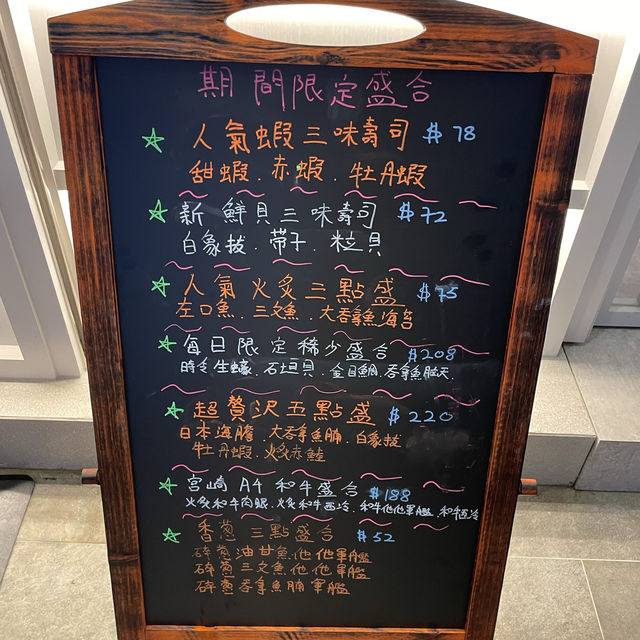 期間限定盛合
人氣蝦三味壽司 $78
甜蝦.赤蝦.牡丹蝦
新鮮貝三味壽司 $72
白象拔.帶子.粒貝
人氣火炙三點盛 $75
左口魚.三文魚.大吞拿魚海苔
每日限定稀少盛合 $208
時令生蠔.石垣貝.金目鯛.吞拿魚腦天.
超贅沢五點盛 $220
日本海膽.大吞拿魚腩.白象拔
牡丹蝦.火炙赤鯥
宮崎A4和牛盛合 $188
火炙和牛肉眼.火炙和牛西冷.和牛他他軍艦.和牛西冷
香蔥三點盛合 $52
碎蔥油甘魚他他軍艦
碎蔥三文魚他他軍艦
碎蔥吞拿魚腩軍艦